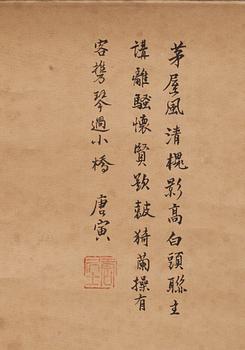 茅屋風清槐影高白頭聮坐
講離騷懷賢欲鼓猗蘭操有
客攜琴過小橋 唐寅